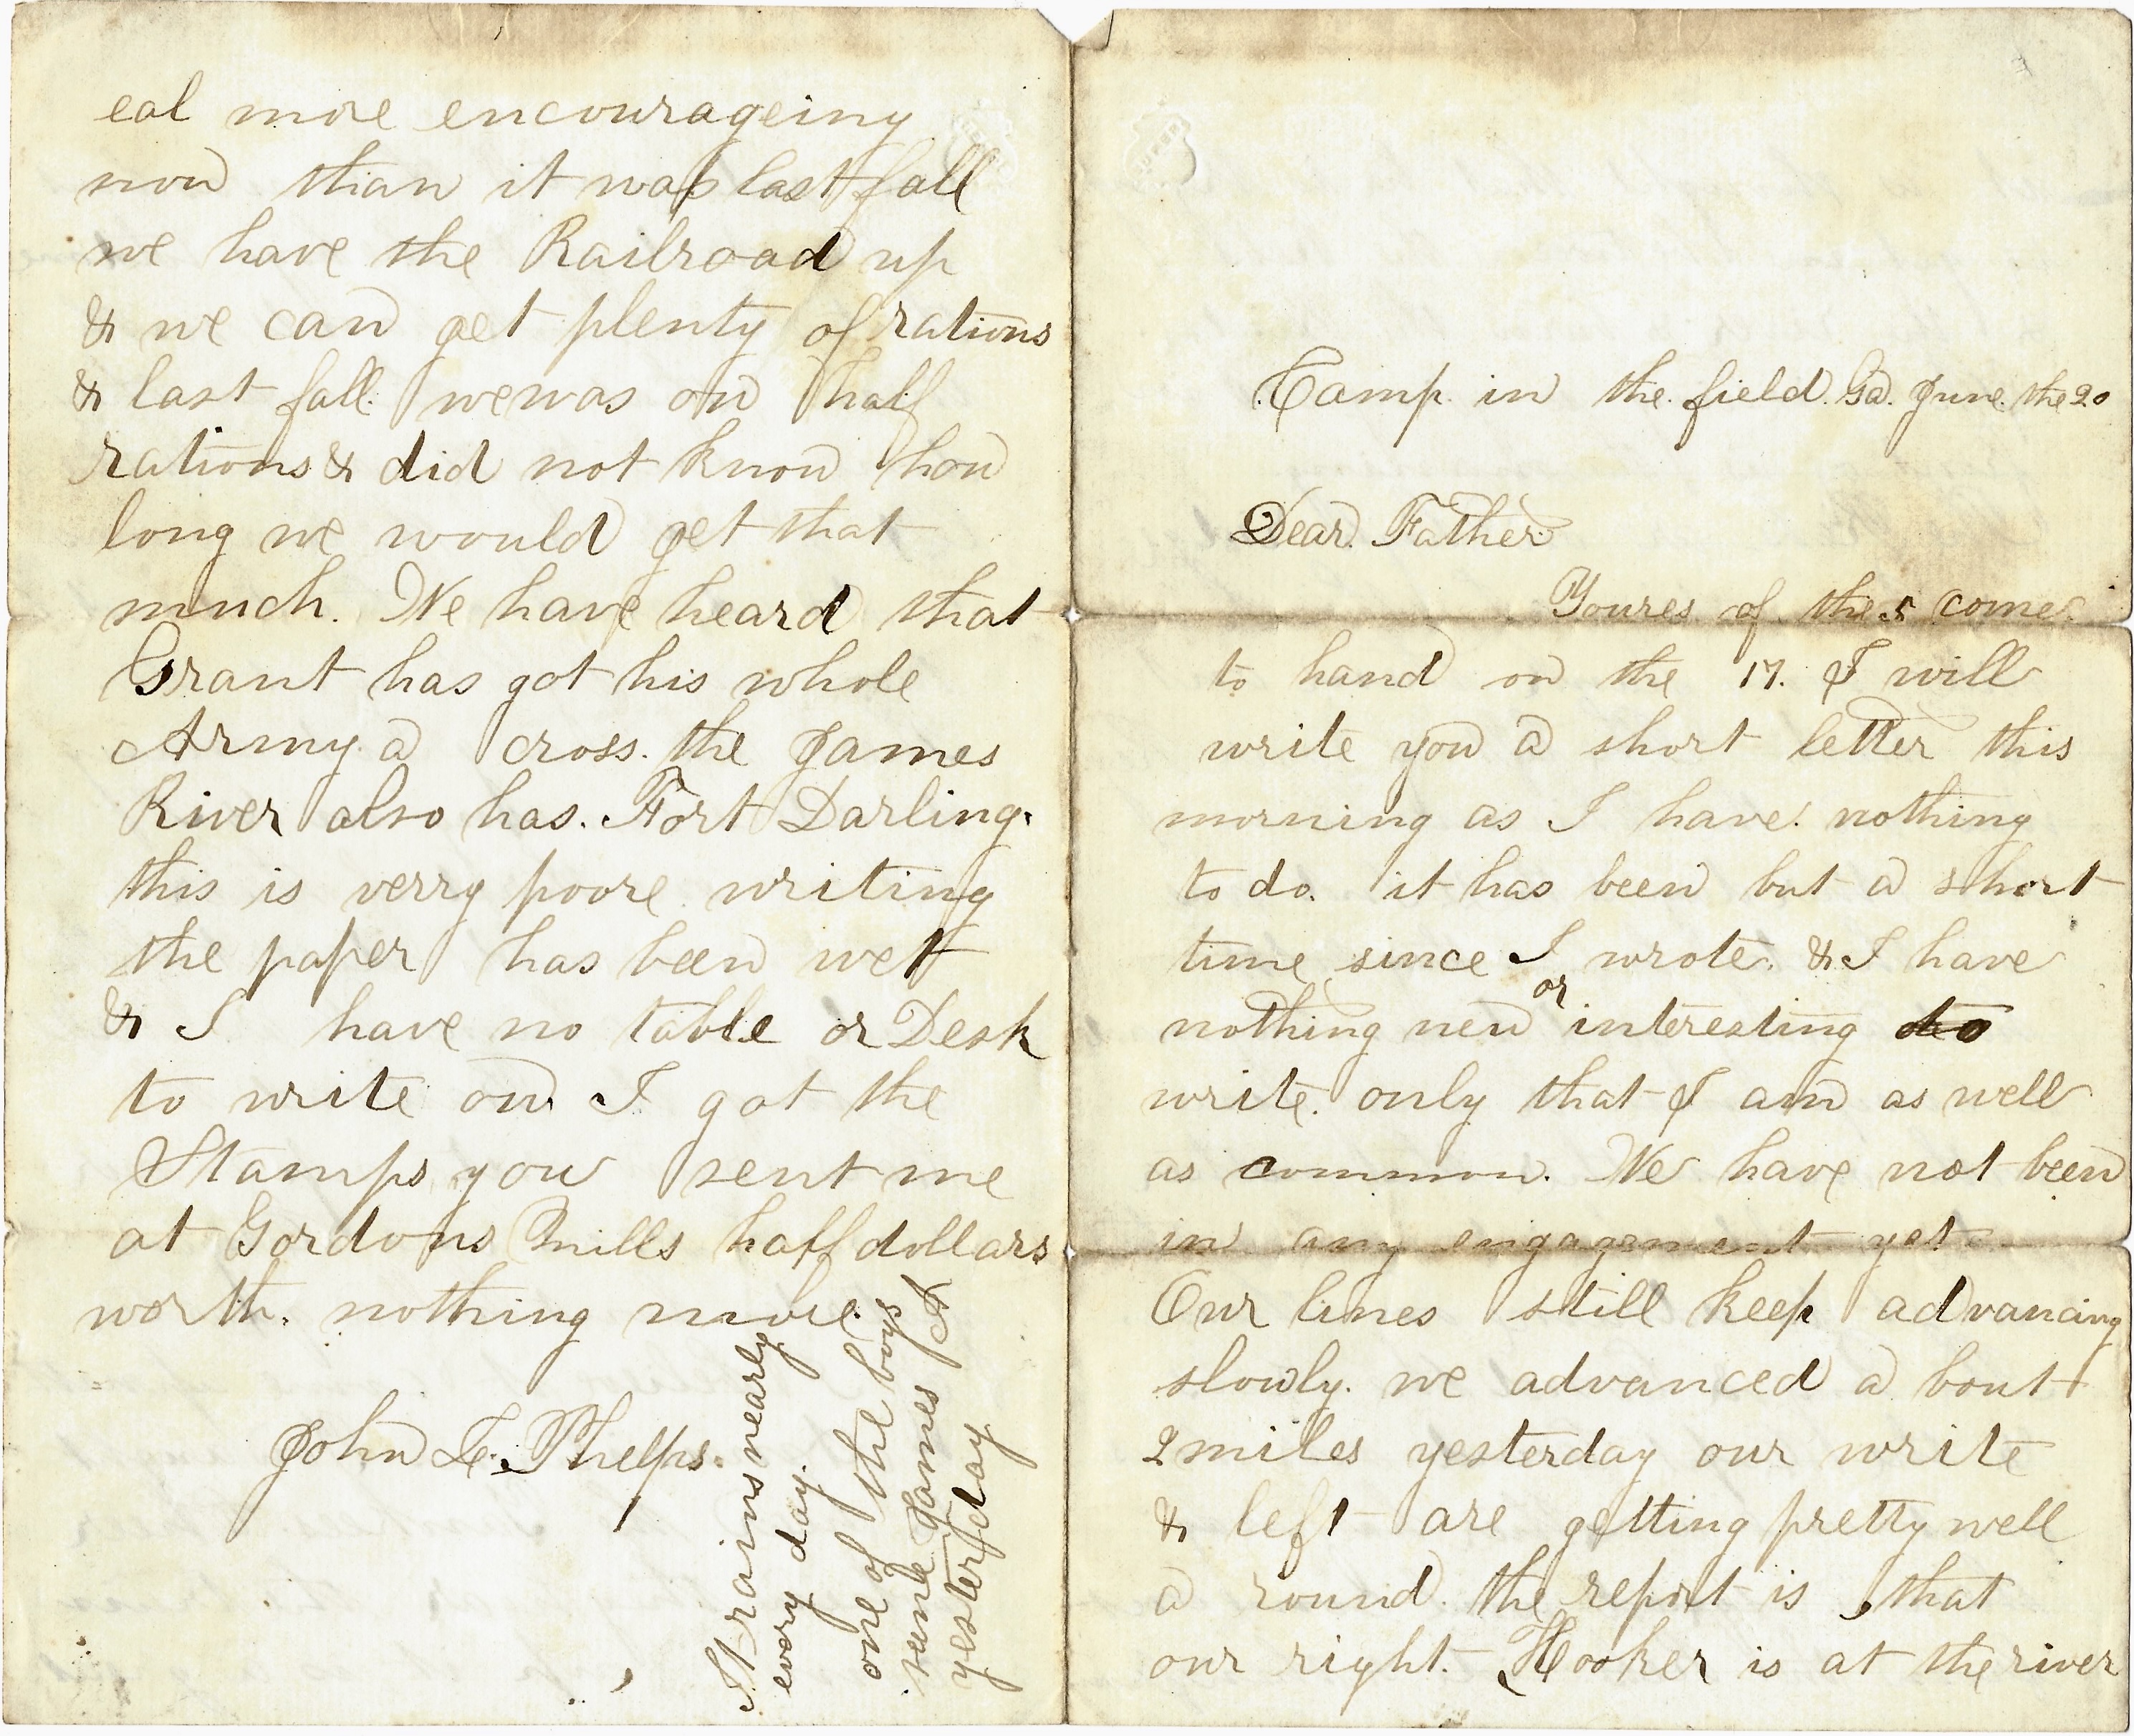 Camp. in the. field. Ga. June. the 20
Dear. Father.
Youres of the. 5 come.
to hand on the 17. I will
write you a short letter this
morning as I have. nothing
to do. it has been but a short
time since I wrote. & I have
nothing new or interesting to
write. only that I am as well
as common. We have not been
in any engagement yet
Our lines still keep advancing
slowly. we advanced a bout
2 miles yesterday our write
& left are getting pretty well
a round. the report is that
our right. Hooker is at the river
eal more encourageing
now than it was last fall
we have the Railroad up
& we can get plenty of rations
& last fall we was on half
rations & did not know how
long we would get that
much. We have heard that
Grant has got his whole
Army a cross. the James
River also has. Fort Darling.
this is verry poore writing
the paper has been wet
& I have no table or Desk
to write on I got the
Stamps you sent me
at Gordons Mills half dollars
worth. nothing more.
John L. Phelps.
It rains nearly
every day.
one of the boys
yesterday